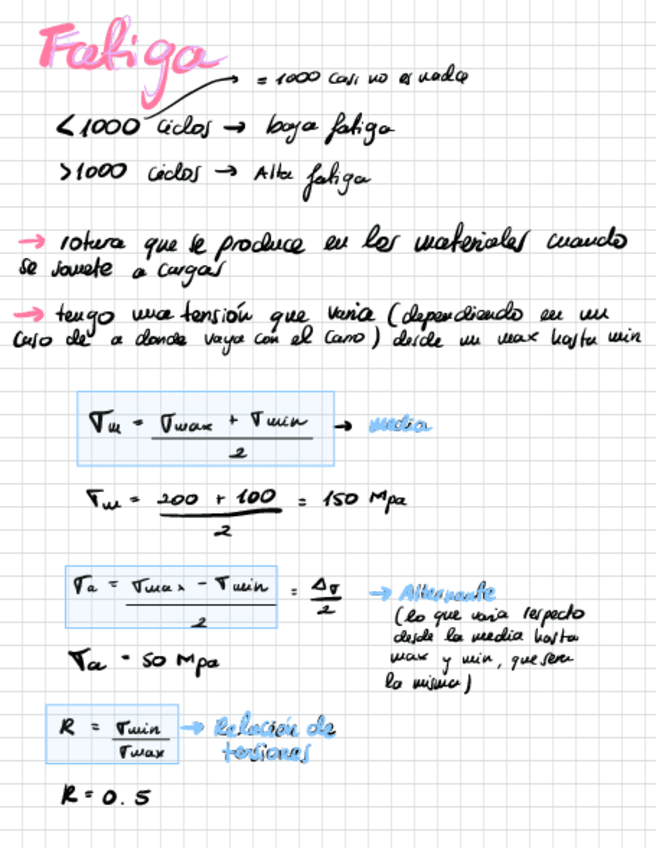 Fatiga
= 1000 casi no es nada
<1000 ciclos → baja fatiga
>1000 ciclos → Alta fatiga
→ rotura que se produce en los materiales cuando
se somete a cargas
→ tengo una tensión que varia (dependiendo en un
caso de a donde vaya con el carro) desde un max hasta min
σm = (σmax + σmin) / 2 → media
σm = (200 + 100) / 2 = 150 Mpa
σa = (σmax - σmin) / 2 = Δσ / 2 → Alternante
(lo que varia respecto
desde la media hasta
max y min, que sera
la misma)
σa = 50 Mpa
R = σmin / σmax → Relación de
tensiones
R = 0.5